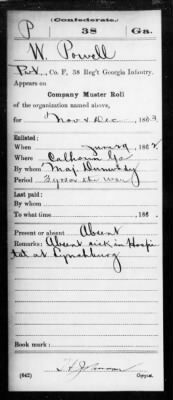 (Confederate.)
P 38 Ga.
W. Powell
Pvt., Co. F, 38 Reg't Georgia Infantry.
Appears on
Company Muster Roll
of the organization named above,
for Nov & Dec, 1863.
Enlisted:
When 186
Where Calhoun Ga
By whom Maj
Period 3 yrs or the war
Last paid:
By whom
To what time , 186 .
Present or absent Absent
Remarks: Absent sick in Hospi
tal at Lynchburg
Book mark:
(642) Copyist.